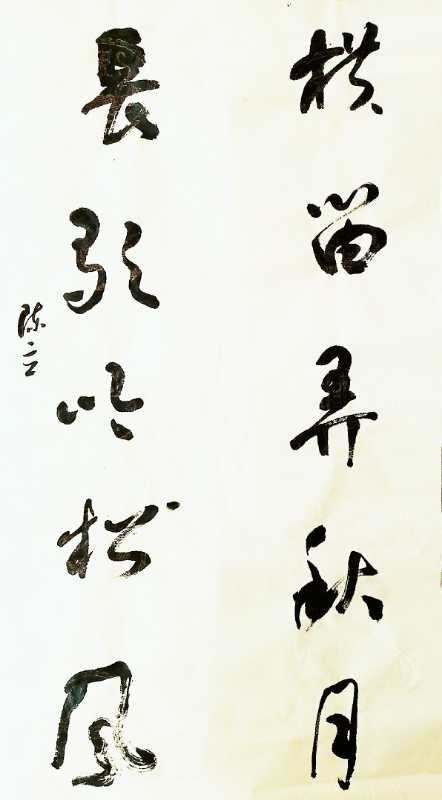 横笛弄秋月
長歌吟松风
陈